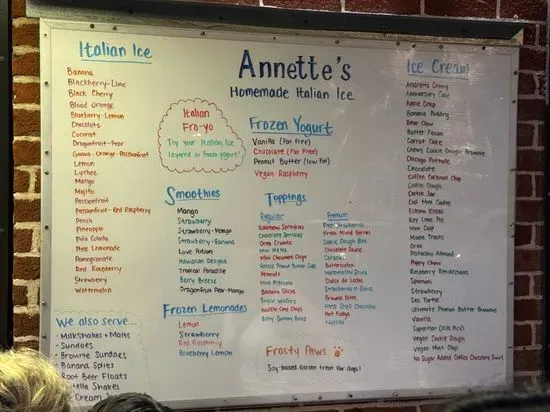 Annette's
Homemade Italian Ice
Italian Ice
Banana
Blackberry-Lime
Black Cherry
Blood Orange
Blueberry-Lemon
Chocolate
Coconut
Dragonfruit-Pear
Guava-Orange-Passionfruit
Lemon
Lychee
Mango
Mojito
Passionfruit
Passionfruit-Red Raspberry
Peach
Pineapple
Piña Colada
Pink Lemonade
Pomegranate
Red Raspberry
Strawberry
Watermelon
We also serve...
-Milkshakes + Malts
-Sundaes
-Brownie Sundaes
-Banana Splits
Root Beer Floats
Nutella Shakes
Ice Cream
Italian
Fro-yo
Try your Italian Ice
layered in frozen yogurt!
Smoothies
Mango
Strawberry
Strawberry-Mango
Strawberry-Banana
Love Potion
Hawaiian Delight
Tropical Paradise
Berry Breeze
Dragonfruit Pear-Mango
Frozen Lemonades
Lemon
Strawberry
Red Raspberry
Blueberry Lemon
Frozen Yogurt
Vanilla (Fat Free)
Chocolate (Fat Free)
Peanut Butter (Low Fat)
Vegan Raspberry
Toppings
Regular
Rainbow Sprinkles
Chocolate Sprinkles
Oreo Crumbs
Mini M&Ms
Mini Chocolate Chips
Reeses Peanut Butter Cups
Peanuts
Banana Slices
Waffle Cone Chips
Gummy Bears
Premium
Fresh Strawberries
Fresh Mixed Berries
Cookie Dough Bits
Chocolate Sauce
Caramel
Butterscotch
Marshmallow Sauce
Dulce de Leche
Strawberries in Sauce
Brownie Bites
Hard Shell Chocolate
Hot Fudge
Nutella
Frosty Paws
Soy-based frozen treat for dogs!
Ice Cream
Amaretto Cherry
Anniversary Cake
Apple Crisp
Banana Pudding
Bear Claw
Butter Pecan
Carrot Cake
Chewy Cookie Dough Brownie
Chicago Pothole
Chocolate
Coffee Caramel Chip
Cookie Dough
Cookie Jar
Cool Mint Cookie
Eskimo Kisses
Key Lime Pie
Mint Chip
Moose Tracks
Oreo
Pistachio Almond
Puppy Chow
Raspberry Rendezvous
Spumoni
Strawberry
Sea Turtle
Ultimate Peanut Butter Brownie
Vanilla
Superman (Kids Pick)
Vegan Cookie Dough
Vegan Mint Chip
No Sugar Added Coffee Chocolate Swirl